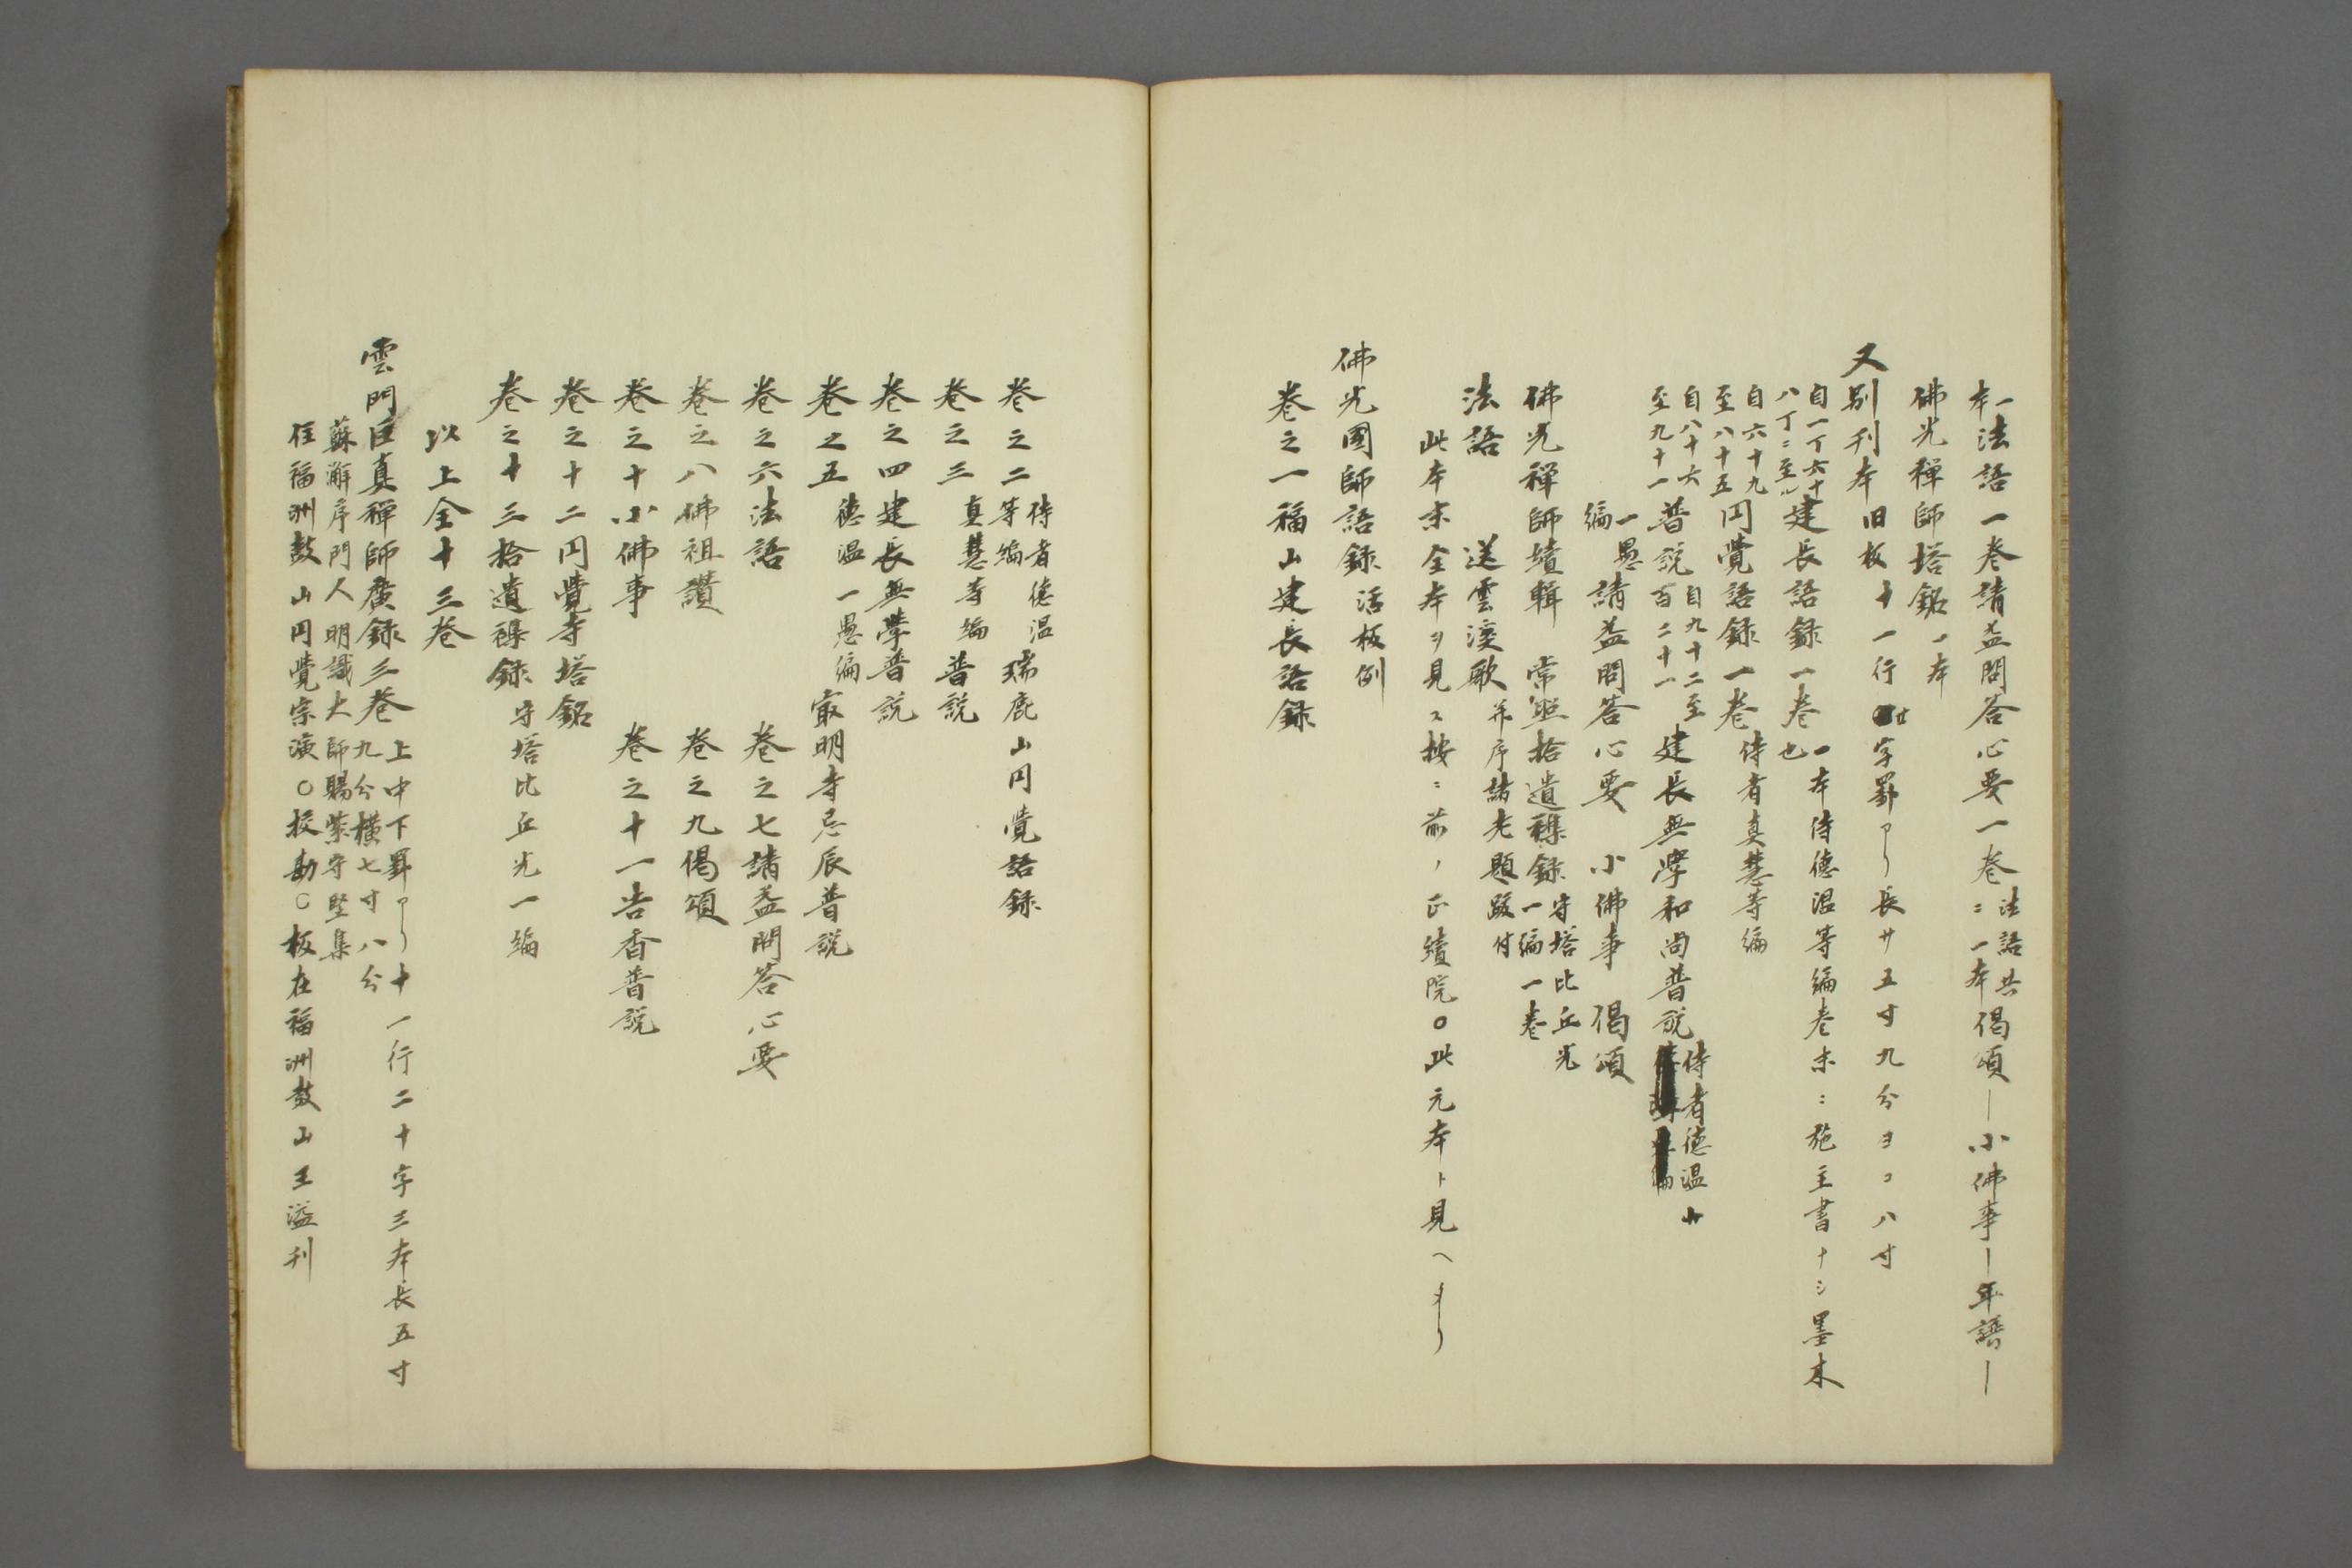 一本法語一巻請益問答心要一巻法語共ニ一本偈頌—小佛事—年譜—
佛光禅師塔銘一本
又別刊本旧板十一行廿字罫アリ長サ五寸九分ヨコ八寸
自一丁六十八丁ニ至ル建長語録一巻一本侍德温等編巻末ニ施主書ナシ墨木也
自六十九至八十五円覺語録一巻侍者真慧等編
自八十六至九十一普説自九十二至百二十一建長無學和尚普説侍者德温
一愚編請益問答心要 小佛事 偈頌
佛光禅師塔銘 常照拾遺雜録守塔比丘光一編一巻
法語 送雲渓歌并序諸老題跋付
此本末全本ヲ見ス按ニ前ノ正續院○此元本ト見ヘタリ
佛光國師語録 活板例
巻之一福山建長語録
巻之二侍者德温等編瑞鹿山円覺語録
巻之三真慧等編普説
巻之四建長無學普説
巻之五德温一愚編 最明寺忌辰普説
巻之六法語 巻之七請益問答心要
巻之八佛祖讃 巻之九偈頌
巻之十小佛事 巻之十一告香普説
巻之十二円覺寺塔銘
巻之十三拾遺雜録守塔比丘光一編
以上全十三巻
雲門匡真禅師廣録三巻上中下罫アリ十一行二十字三本長五寸九分横七寸八分
蘇澥序門人明識大師賜紫守堅集
住福洲鼓山円覺宗演○校勘○板在福洲鼓山王溢刊